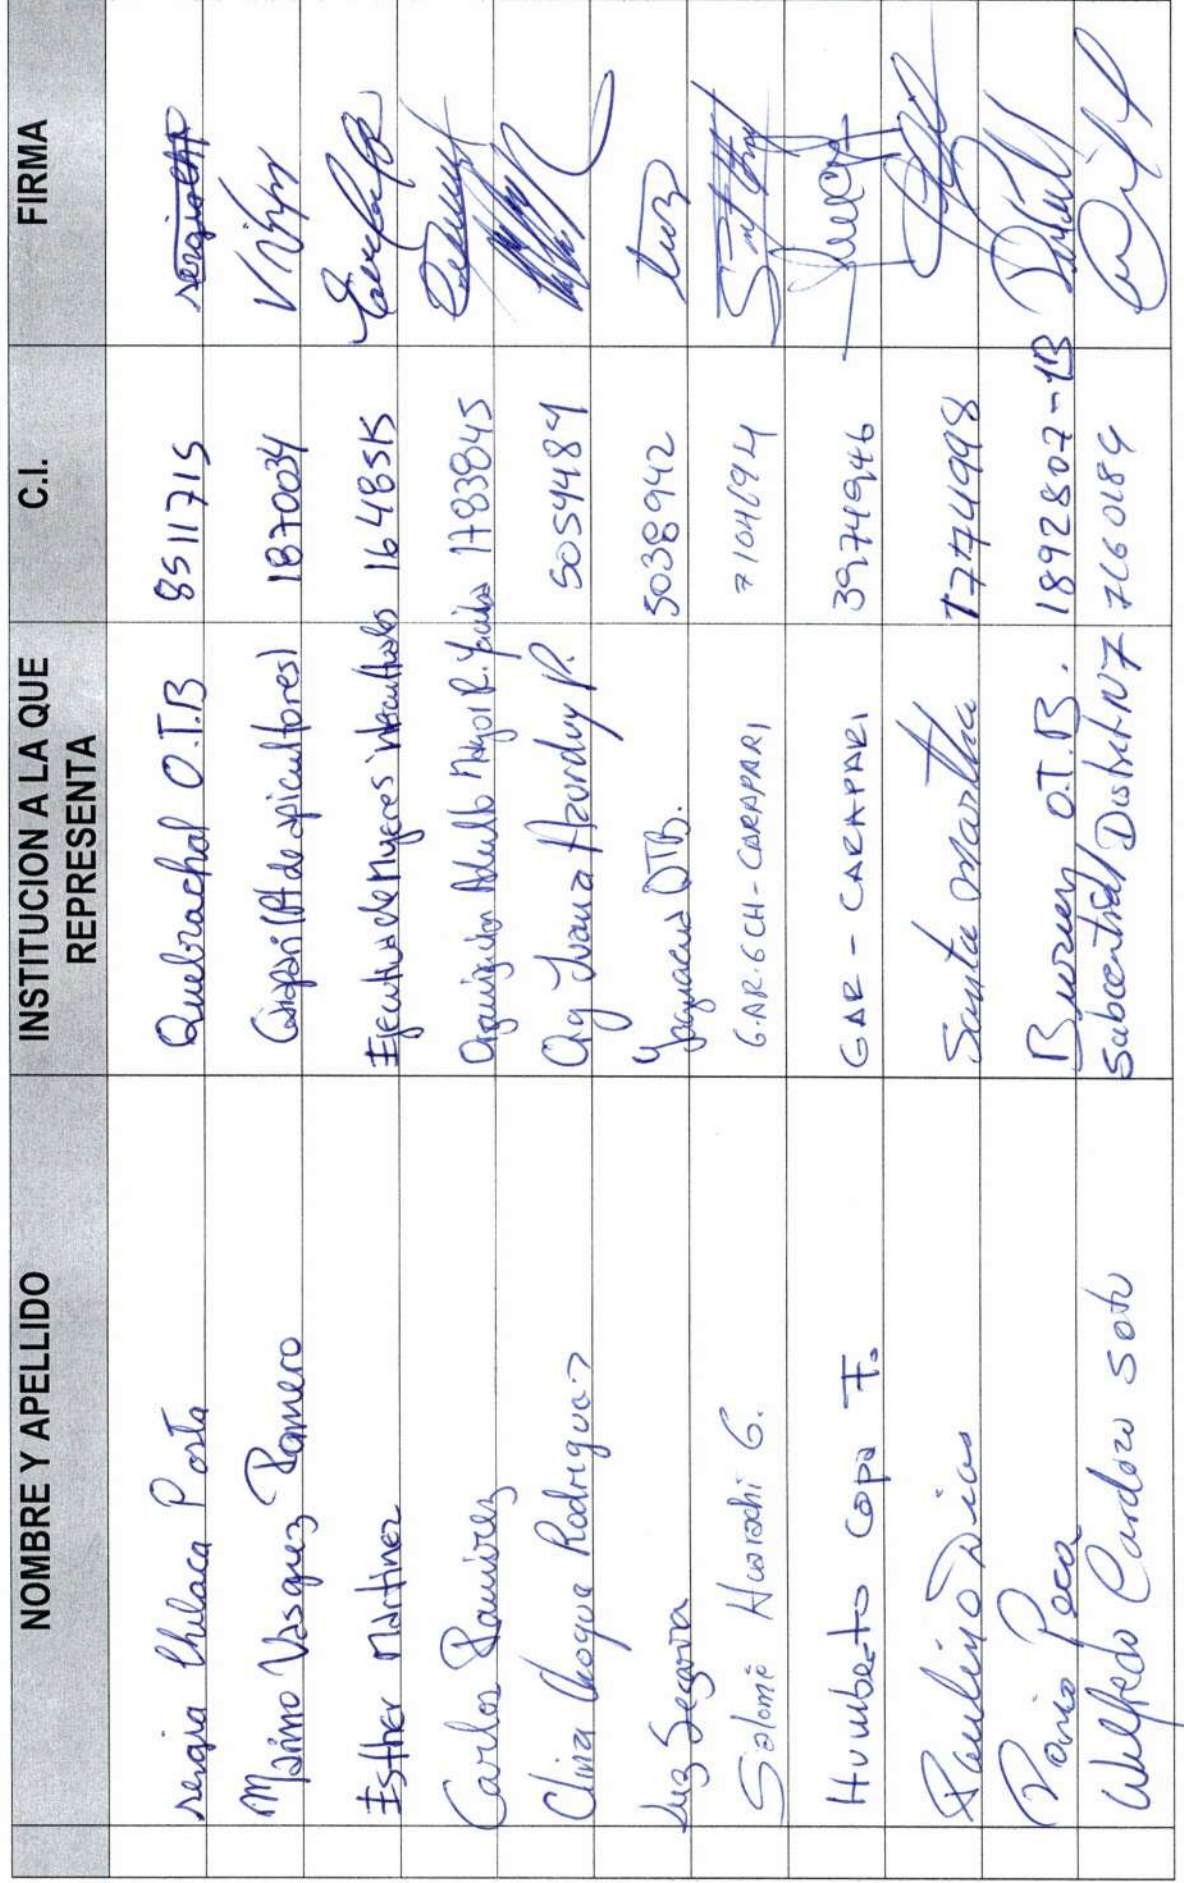 NOMBRE Y APELLIDO INSTITUCION A LA QUE REPRESENTA C.I. FIRMA
sergia Chilaca Posta Quebrachal O.T.B 8511715
Maximo Vasquez Romero de apicultores 1870034
Esther Martinez Ejecutiva de Mujeres 164851S
Carlos Ramirez Adulto Mayor R. 1783845
Choque Rodriguez Org Juana Azurduy P. 5054489
Luz Segovia OTB. 5038942 Luz
Salomé Huarachi G. G.A.R.G CH - CARAPARI 7104694
Humberto Copa F. GAR - CARAPARI 3974946
Paulino Dias Santa Martha 1774998
Peca O.T.B. 1892807-1B
Wilfredo Cardozo Soto Subcentral Distrit N7 7660184